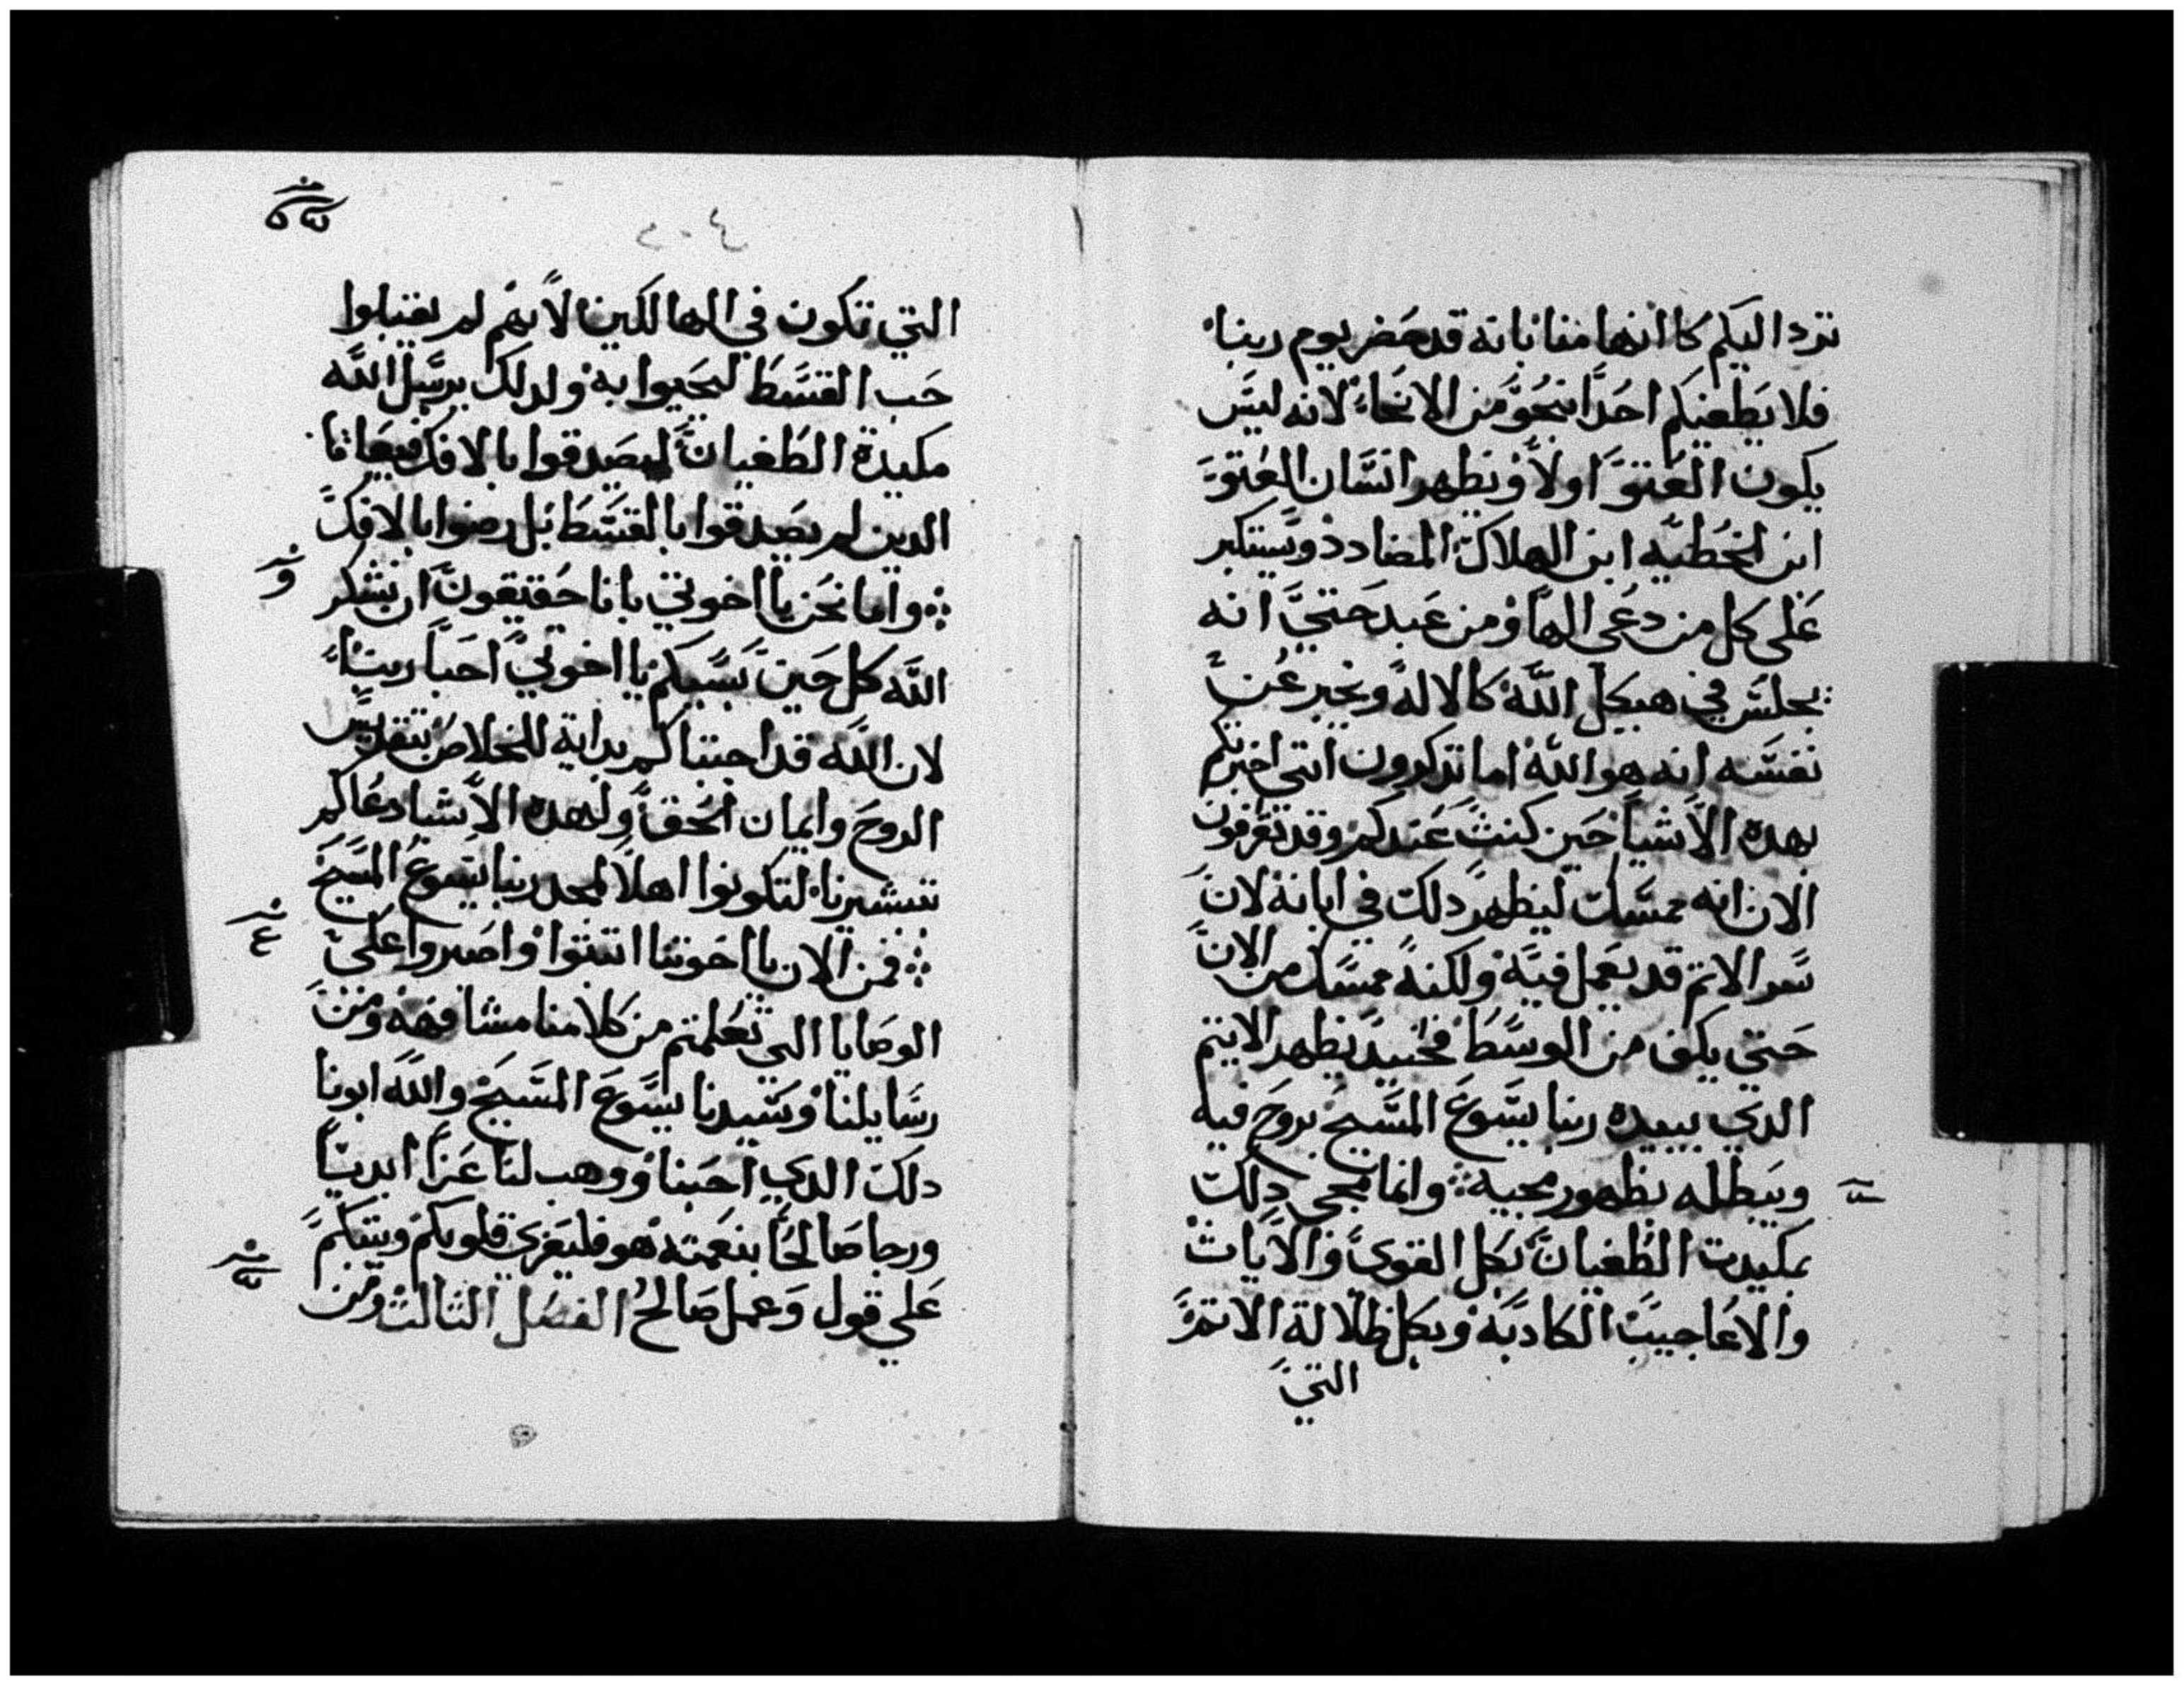 ترد اليكم كاانها منا بانه قد حضر يوم ربنا
فلا يطغينكم احدا بنحو من الانحاء لانه ليس
يكون العتو اولا ويظهر انسان العتو
ابن الخطيه ابن الهلاك المضادد ويستكبر
على كل من دعى الها ومن عبد حتي انه
يجلس في هيكل الله كالاله ويخبر عن
نفسه انه هو الله اما تذكرون انني اخبرتكم
بهده الاشيا حين كنت عندكم وقد تعرفون
الان انه ممسك ليظهر دلك في ابانه لان
سر الاتم قد يعمل فيه ولكنه ممسك من الان
حتي يكف من الوسط فحينيد يظهر الاتيم
الدي يبيده ربنا يسوع المسيح بروح فيه
ويبطله بظهور مجيه وانما مجي دلك
بمكيدت الطغيان بكل القوي والايات
والاعاجيب الكادبه وبكل ظلالة الاتم
التي
٢٠٤
التي تكون في الهالكين لانهم لم يقبلوا
حب القسط ليحيوا به ولدلك يرسل الله
مكيدة الطغيان ليصدقوا بالافك فيعاقبا
الدين لم يصدقوا بالقسط بل رضوا بالافك
واما نحن يااخوتي بانا حقيقون ان نشكر
الله كل حين بسببكم يااخوتي احبا ربنا
لان الله قد اجتباكم بداية للخلاص بتقديس
الروح وايمان الحق ولهده الاشيا دعاكم
بتبشيرنا لتكونوا اهلا لمجد ربنا يسوع المسيح
فمن الان يااخوتنا اتبتوا واصبروا على
الوصايا التي تعلمتم من كلامنا مشافهه ومن
رسايلنا وسيدنا يسوع المسيح والله ابونا
دلك الدي احبنا ووهب لنا عزا ابديا
ورجا صالحا بنعمته هو فليعزي قلوبكم ويتبكم
علي قول وعمل صالح الفصل التالت ومن